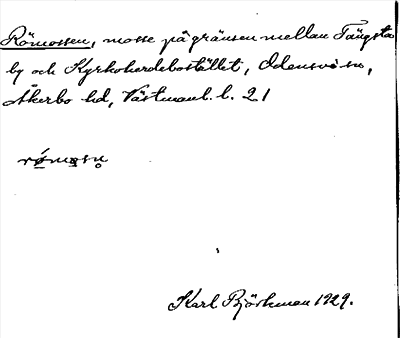 Römossen, mosse på gränsen mellan Tängsta
by och Kyrkoherdebostället, Odensvi sn,
Åkerbo hd, Västmanl. l. 21
römosn̥
Karl Björkman 1929.